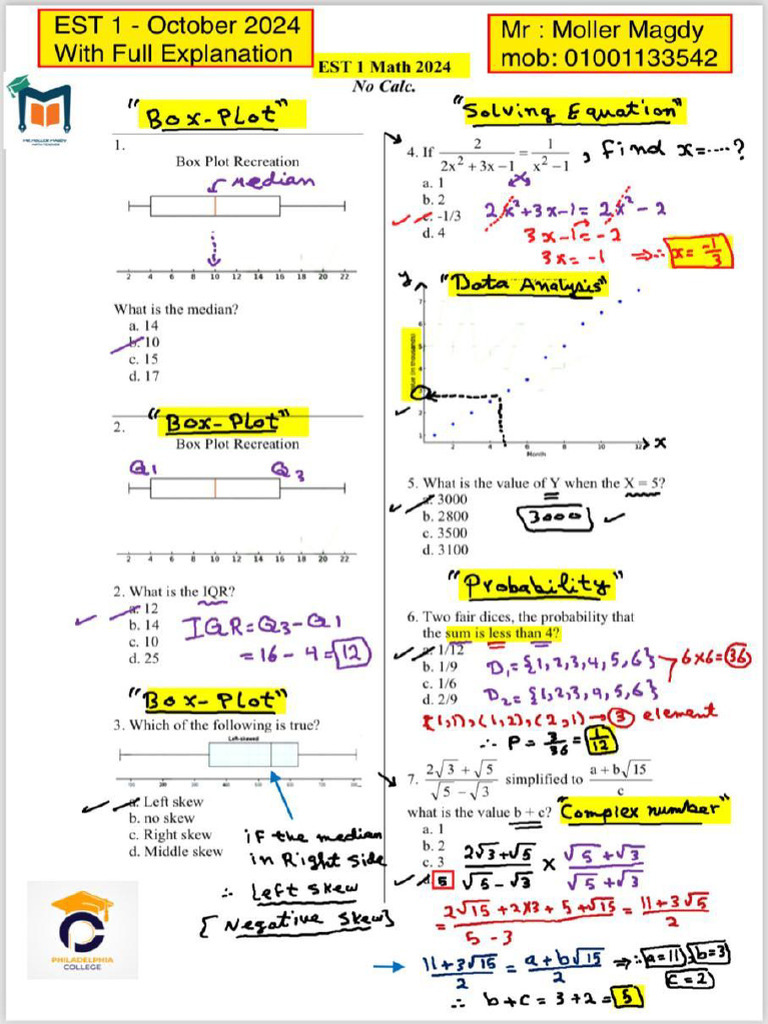 EST 1 - October 2024
With Full Explanation
Mr : Moller Magdy
mob: 01001133542
EST 1 Math 2024
No Calc.
"Box-Plot"
1.
Box Plot Recreation
median
2 4 6 8 10 12 14 16 18 20 22
What is the median?
a. 14
b. 10
c. 15
d. 17
"Box-Plot"
2.
Box Plot Recreation
Q1 Q3
2 4 6 8 10 12 14 16 18 20 22
2. What is the IQR?
a. 12
b. 14
c. 10
d. 25
IQR = Q3 - Q1
= 16 - 4 = 12
"Box-Plot"
3. Which of the following is true?
Left-skewed
a. Left skew
b. no skew
c. Right skew
d. Middle skew
if the median
in Right side
∴ Left skew
[Negative skew]
PHILADELPHIA
COLLEGE
"Solving Equation"
4. If 2/(2x² + 3x − 1) = 1/(x² − 1) , find x=....?
a. 1
b. 2
c. -1/3
d. 4
2x²+3x-1 = 2x²-2
3x-1 = -2
3x = -1 ⇒∴ x = -1/3
"Data Analysis"
y
Value (in thousands)
7
6
5
2
1
2 4 6 8 10 12 x
Month
5. What is the value of Y when the X = 5?
a. 3000
b. 2800
c. 3500
d. 3100
3000
"Probability"
6. Two fair dices, the probability that
the sum is less than 4?
a. 1/12
b. 1/9
c. 1/6
d. 2/9
D1 = {1,2,3,4,5,6}
D2 = {1,2,3,4,5,6}
6×6=36
{(1,1),(1,2),(2,1) → 3 element
∴ P = 3/36 = 1/12
7. (2√3 + √5)/(√5 − √3) simplified to (a + b√15)/c
what is the value b + c?
"Complex number"
a. 1
b. 2
c. 3
d. 5
(2√3+√5)/(√5-√3) × (√5+√3)/(√5+√3)
= (2√15 + 2×3 + 5 + √15)/(5-3) = (11+3√5)/2
(11+3√15)/2 = (a+b√15)/2 ⇒∴ a=11, b=3
c=2
∴ b+c = 3+2 = 5